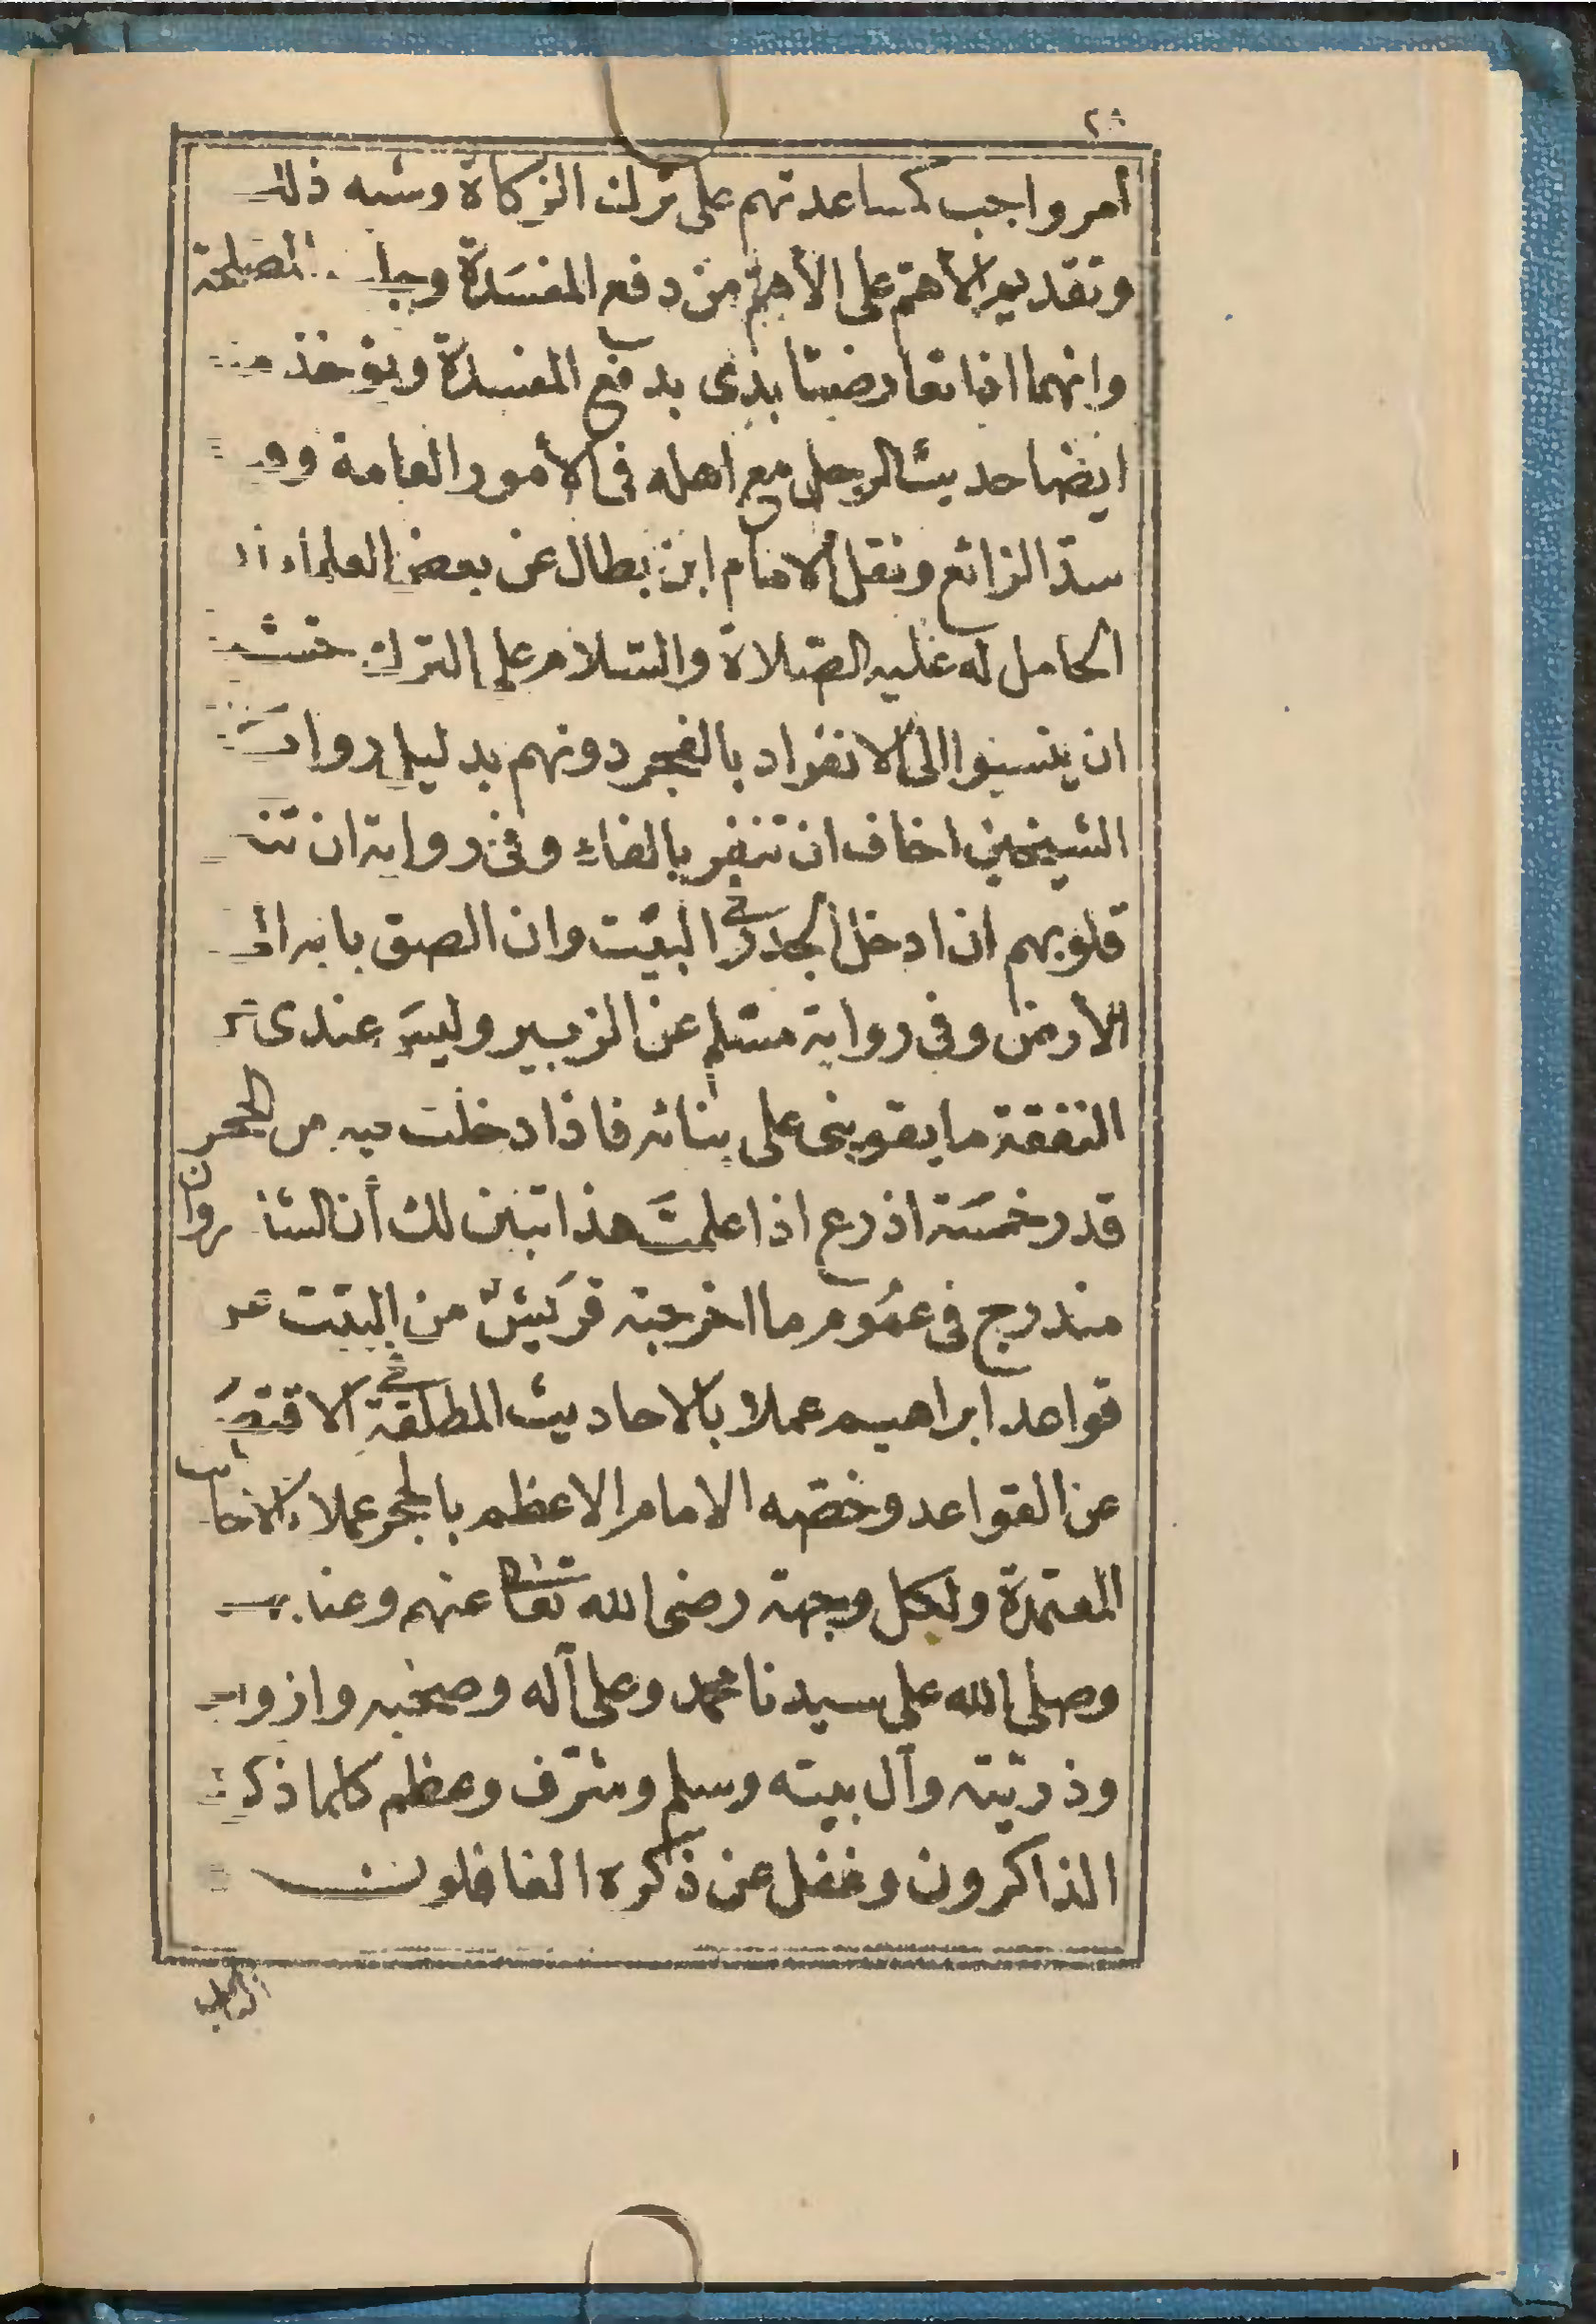 ٢٨
أمر واجب كمساعدتهم على ترك الزكاة وشبه ذلك
وتقديم الأهم على الأهم من دفع المفسدة وجلب المصلحة
وانهما اذا تعارضتا بدى بدفع المفسدة ويؤخذ منه
ايضا حديث الرجل مع اهله فى الأمور العامة وفيه
سد الزائع ونقل الامام ابن بطال عن بعض العلماء ان
الحامل له عليه الصلاة والسلام على الترك خشية
ان ينسبوا الى الانفراد بالفجر دونهم بدليل رواية
الشيخين اخاف ان تنفر بالفاء وفى رواية ان تنكر
قلوبهم ان ادخل الجدر فى البيت وان الصق بابه الى
الأرض وفى رواية مسلم عن الزبير وليس عندى من
النفقة ما يقوينى على بنائه فاذا دخلت فيه من الحجر
قدر خمسة اذرع اذا علمت هذا تبين لك أن الشاذروان
مندرج فى عموم ما اخرجته قريش من البيت عن
قواعد ابراهيم عملا بالاحاديث المطلقة فى الاقتصار
عن القواعد وخصه الامام الاعظم بالحجر عملا بالاحاديث
المعتمدة ولكل وجهة رضى الله تعالى عنهم وعنا بهم
وصلى الله على سيدنا محمد وعلى آله وصحبه وازواجه
وذريته وآل بيته وسلم وشرف وعظم كلما ذكره
الذاكرون وغفل عن ذكره الغافلون